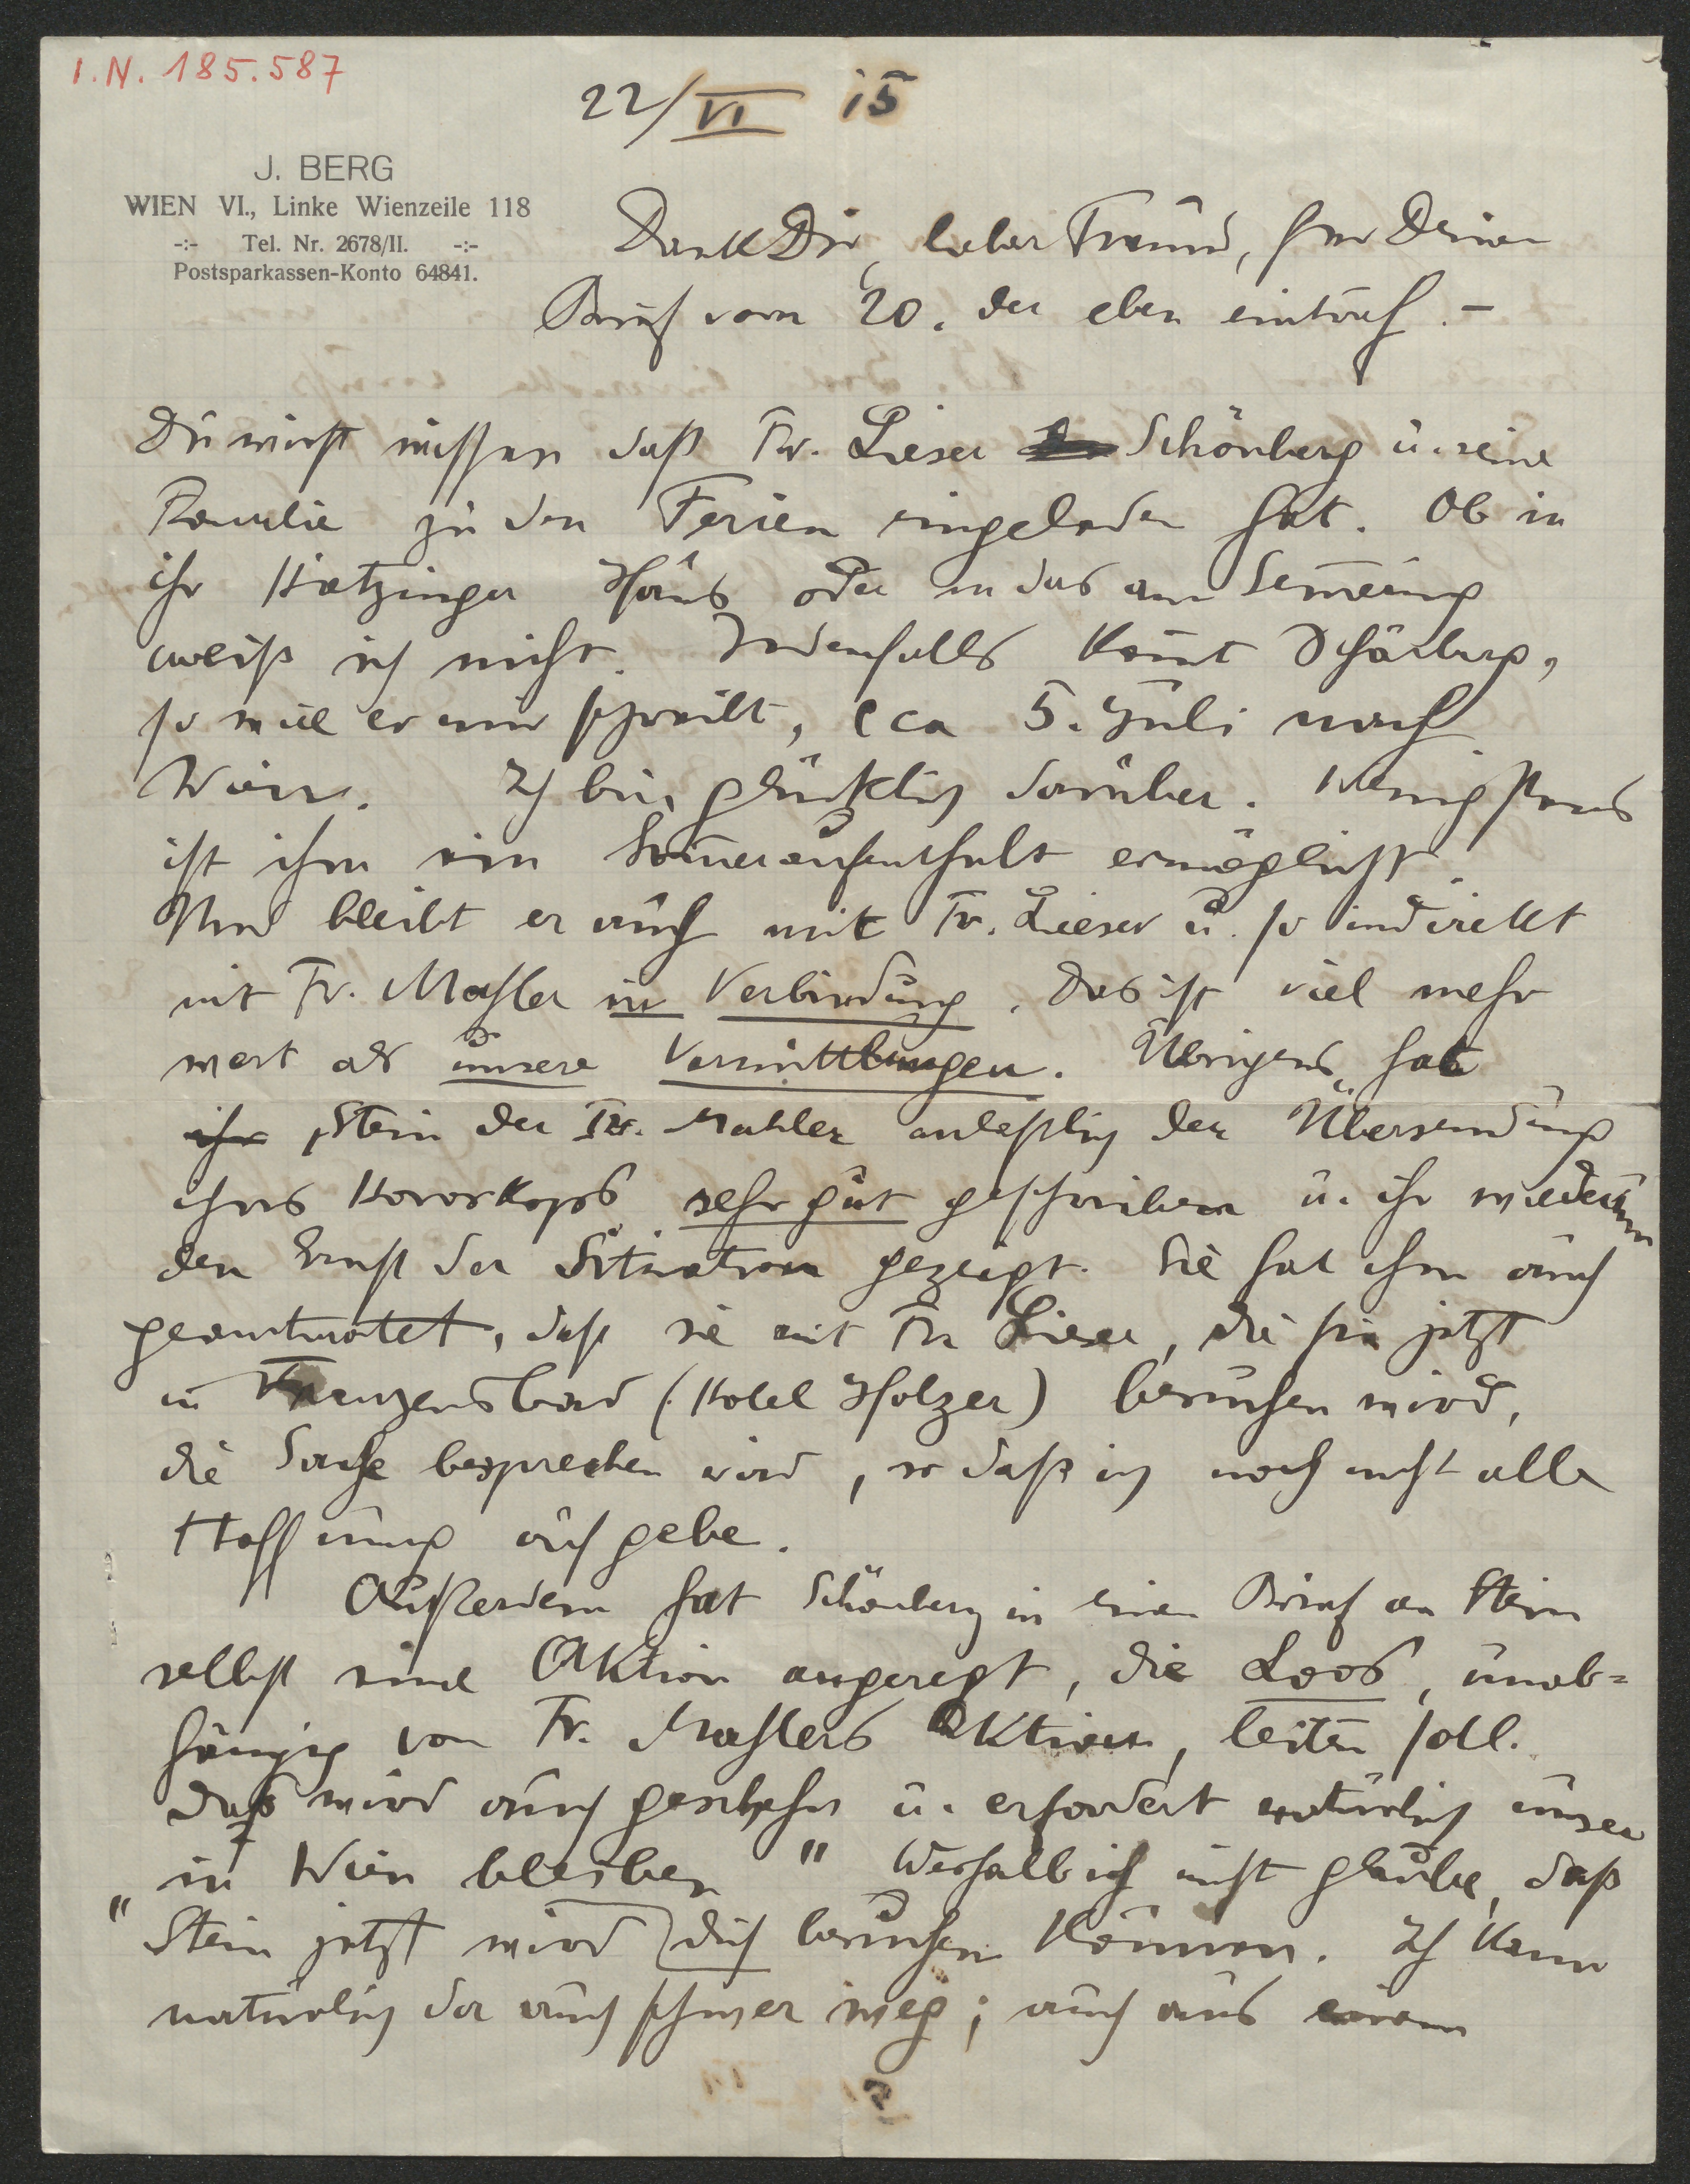 I.N. 185.587
22/VI 15
J. BERG
WIEN VI., Linke Wienzeile 118
-:- Tel. Nr. 2678/II. -:-
Postsparkassen-Konto 64841.
Dank Dir, lieber Freund, für Deinen
Brief vom 20. der eben eintraf. –
Du wirst wissen daß Fr. Lieser Schönberg u. seine
Familie zu den Ferien eingeladen hat. Ob in
ihr Kietzinger Haus oder in das am Sem̅ering
weiß ich nicht. Jedenfalls kom̅t Schönberg,
so wie er mir schreibt, cca 5. Juli nach
Wien. Ich bin glücklich darüber. Wenigstens
ist ihm ein Som̅eraufenthalt ermöglicht.
Und bleibt er auch mit Fr. Lieser u. so indirekt
mit Fr. Mahler in Verbindung. Das ist viel mehr
wert als unsere Vermittlungen. Übrigens hat
ihr Stein der Fr. Mahler anläßlich der Übersendung
ihres Horoskops sehr gut geschrieben u. ihr wiederum
den Ernst der Situation gezeigt. Sie hat ihm auch
geantwortet, daß sie mit Fr Lieser, die sie jetzt
in Franzensbad (Hotel Holzer) besuchen wird,
die Sache besprechen wird, so daß ich noch nicht alle
Hoffnung aufgebe.
Außerdem hat Schönberg in einen Brief an Stein
selbst eine Aktion angeregt, die Loos, unab=
hängig von Fr. Mahlers Aktion, leiten soll.
Daß wird auch geschehn u. erfordert natürlich unser
"in Wien bleiben" Weshalb ich nicht glaube, daß
Stein jetzt wird dich besuchen können. Ich kann
natürlich da auch schwer weg; auch aus einem